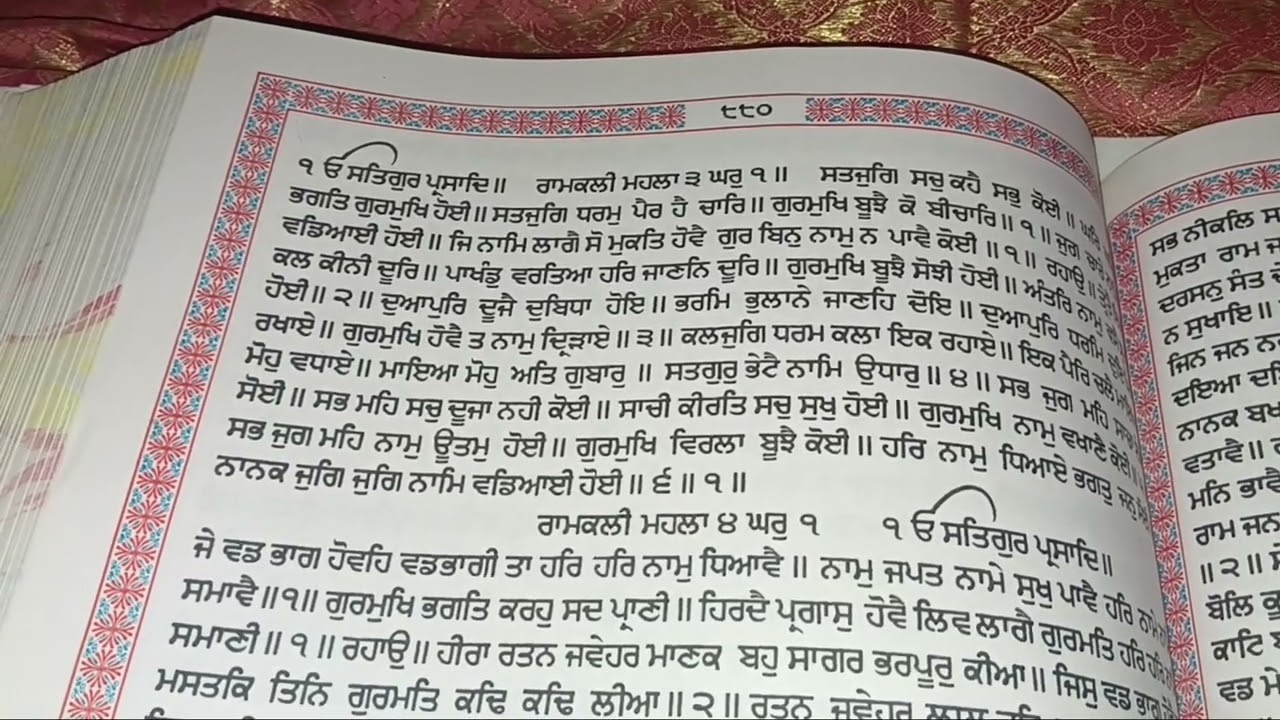 ੮੮੦
੧ ਓ ਸਤਿਗੁਰ ਪ੍ਰਸਾਦਿ॥ ਰਾਮਕਲੀ ਮਹਲਾ ੩ ਘਰੁ ੧॥ ਸਤਜੁਗਿ ਸਚੁ ਕਹੈ ਸਭੁ ਕੋਈ॥ ਘਰਿ
ਭਗਤਿ ਗੁਰਮੁਖਿ ਹੋਈ॥ ਸਤਜੁਗਿ ਧਰਮੁ ਪੈਰ ਹੈ ਚਾਰਿ॥ ਗੁਰਮੁਖਿ ਬੂਝੈ ਕੋ ਬੀਚਾਰਿ॥੧॥ ਜੁਗ ਚਾਰੇ
ਵਡਿਆਈ ਹੋਈ॥ ਜਿ ਨਾਮਿ ਲਾਗੈ ਸੋ ਮੁਕਤਿ ਹੋਵੈ ਗੁਰ ਬਿਨੁ ਨਾਮੁ ਨ ਪਾਵੈ ਕੋਈ॥੧॥ ਰਹਾਉ॥
ਕਲ ਕੀਨੀ ਦੂਰਿ॥ ਪਾਖੰਡੁ ਵਰਤਿਆ ਹਰਿ ਜਾਣਨਿ ਦੂਰਿ॥ ਗੁਰਮੁਖਿ ਬੂਝੈ ਸੋਝੀ ਹੋਈ॥ ਅੰਤਰਿ ਨਾਮੁ
ਹੋਈ॥੨॥ ਦੁਆਪੁਰਿ ਦੂਜੈ ਦੁਬਿਧਾ ਹੋਇ॥ ਭਰਮਿ ਭੁਲਾਨੇ ਜਾਣਹਿ ਦੋਇ॥ ਦੁਆਪੁਰਿ ਧਰਮਿ
ਰਖਾਏ॥ ਗੁਰਮੁਖਿ ਹੋਵੈ ਤ ਨਾਮੁ ਦ੍ਰਿੜਾਏ॥੩॥ ਕਲਜੁਗਿ ਧਰਮ ਕਲਾ ਇਕ ਰਹਾਏ॥ ਇਕ ਪੈਰਿ ਚਲੈ
ਮੋਹੁ ਵਧਾਏ॥ ਮਾਇਆ ਮੋਹੁ ਅਤਿ ਗੁਬਾਰੁ॥ ਸਤਗੁਰੁ ਭੇਟੈ ਨਾਮਿ ਉਧਾਰੁ॥੪॥ ਸਭ ਜੁਗ ਮਹਿ ਸਾਚਾ
ਸੋਈ॥ ਸਭ ਮਹਿ ਸਚੁ ਦੂਜਾ ਨਹੀ ਕੋਈ॥ ਸਾਚੀ ਕੀਰਤਿ ਸਚੁ ਸੁਖੁ ਹੋਈ॥ ਗੁਰਮੁਖਿ ਨਾਮੁ ਵਖਾਣੈ ਕੋਈ॥
ਸਭ ਜੁਗ ਮਹਿ ਨਾਮੁ ਊਤਮੁ ਹੋਈ॥ ਗੁਰਮੁਖਿ ਵਿਰਲਾ ਬੂਝੈ ਕੋਈ॥ ਹਰਿ ਨਾਮੁ ਧਿਆਏ ਭਗਤੁ ਜਨੁ
ਨਾਨਕ ਜੁਗਿ ਜੁਗਿ ਨਾਮਿ ਵਡਿਆਈ ਹੋਈ॥੬॥੧॥
ਰਾਮਕਲੀ ਮਹਲਾ ੪ ਘਰੁ ੧ ੧ ਓ ਸਤਿਗੁਰ ਪ੍ਰਸਾਦਿ॥
ਜੇ ਵਡ ਭਾਗ ਹੋਵਹਿ ਵਡਭਾਗੀ ਤਾ ਹਰਿ ਹਰਿ ਨਾਮੁ ਧਿਆਵੈ॥ ਨਾਮੁ ਜਪਤ ਨਾਮੇ ਸੁਖੁ ਪਾਵੈ ਹਰਿ ਨਾਮੇ
ਸਮਾਵੈ॥੧॥ ਗੁਰਮੁਖਿ ਭਗਤਿ ਕਰਹੁ ਸਦ ਪ੍ਰਾਣੀ॥ ਹਿਰਦੈ ਪ੍ਰਗਾਸੁ ਹੋਵੈ ਲਿਵ ਲਾਗੈ ਗੁਰਮਤਿ ਹਰਿ ਹਰਿ
ਸਮਾਣੀ॥੧॥ ਰਹਾਉ॥ ਹੀਰਾ ਰਤਨ ਜਵੇਹਰ ਮਾਣਕ ਬਹੁ ਸਾਗਰ ਭਰਪੂਰੁ ਕੀਆ॥ ਜਿਸੁ ਵਡ ਭਾਗੁ
ਮਸਤਕਿ ਤਿਨਿ ਗੁਰਮਤਿ ਕਢਿ ਕਢਿ ਲੀਆ॥੨॥ ਰਤਨੁ ਜਵੇਹਰ
ਸਭ ਨੀਕਲਿ
ਮੁਕਤਾ ਰਾਮ
ਦਰਸਨੁ ਸੰਤ
ਨ ਸੁਖਾਇ॥
ਜਿਨ ਜਨ
ਦਇਆ
ਨਾਨਕ
ਵਤਾਵੈ॥
ਮਨਿ ਭਾਵੈ
ਰਾਮ ਜਨ
॥੨॥
ਬੋਲਿ
ਕਾਟਿ
ਵਡ